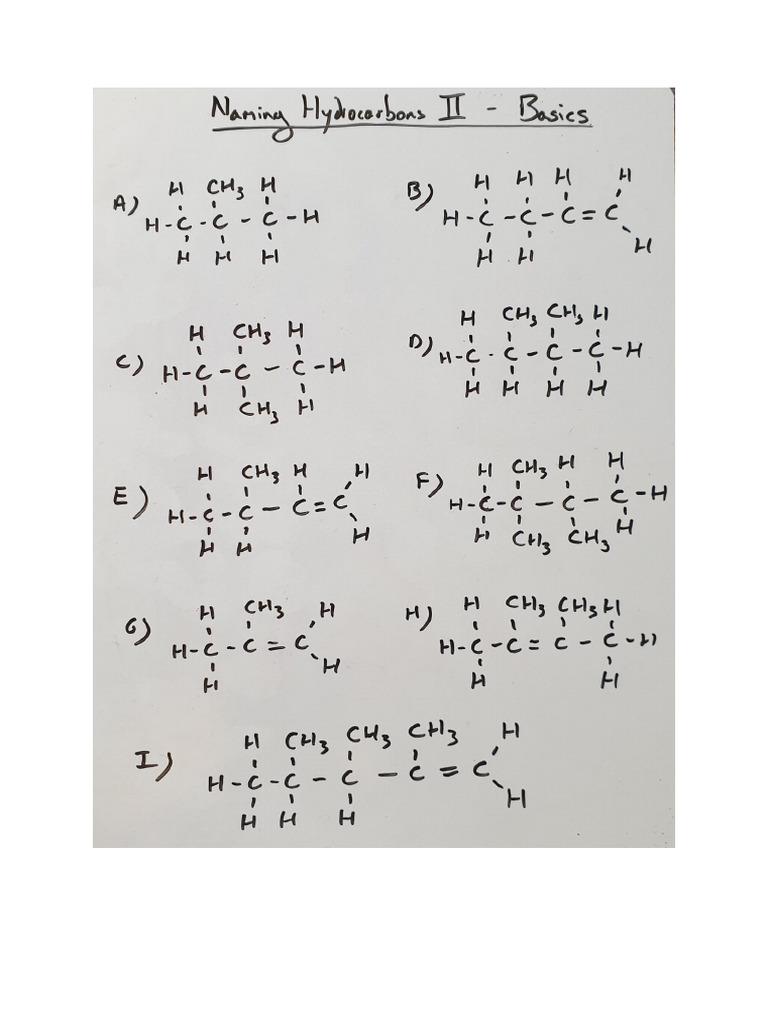 Naming Hydrocarbons II - Basics
A)
H CH3 H
H-C-C-C-H
H H H
B)
H H H H
H-C-C-C=C
H H H
C)
H CH3 H
H-C-C-C-H
H CH3 H
D)
H CH3 CH3 H
H-C-C-C-C-H
H H H H
E)
H CH3 H H
H-C-C-C=C
H H H
F)
H CH3 H H
H-C-C-C-C-H
H CH3 CH3 H
G)
H CH3 H
H-C-C=C
H H
H)
H CH3 CH3 H
H-C-C=C-C-H
H H
I)
H CH3 CH3 CH3 H
H-C-C-C-C=C
H H H H